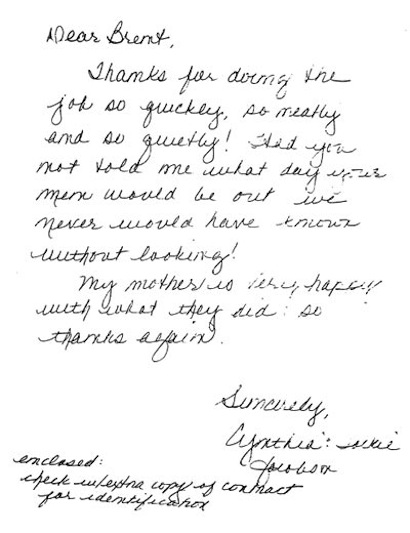 Dear Brent,
Thanks for doing the
job so quickly, so neatly
and so quietly! Had you
not told me what day your
men would be out we
never would have known
without looking!
My mother is very happy
with what they did so
thanks again!
Sincerely,
Cynthia
Jacobson
enclosed:
check w/extra copy of contract
for identification